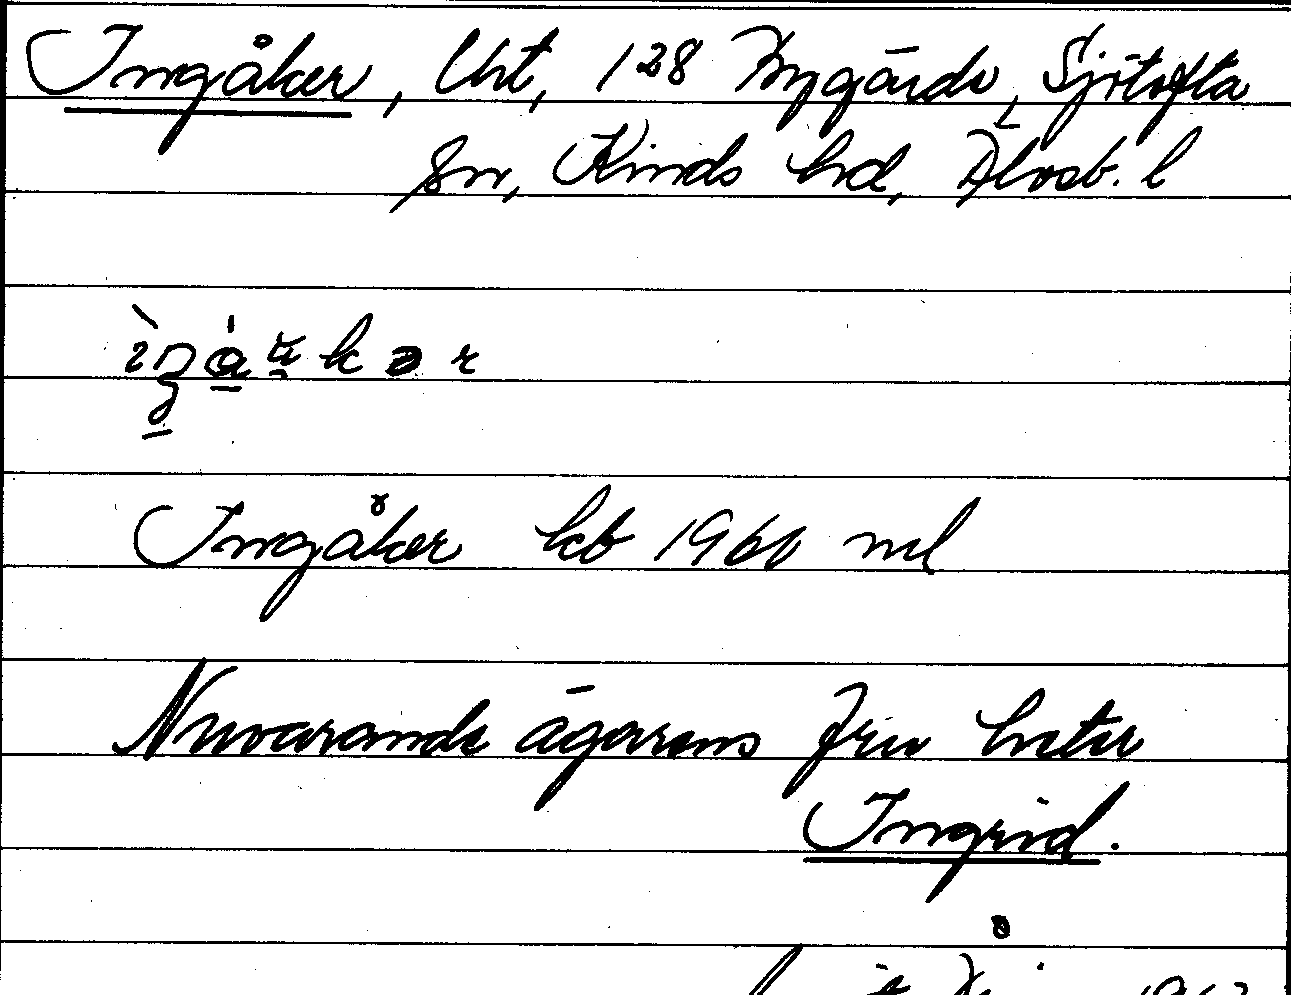 Ingåker, Uht, 128 Nygärde, Sjötofta
sn, Kinds hd, Älvsb. l
Ingåker kb 1960 nd
Nuvarande ägarens fru heter
Ingrid.